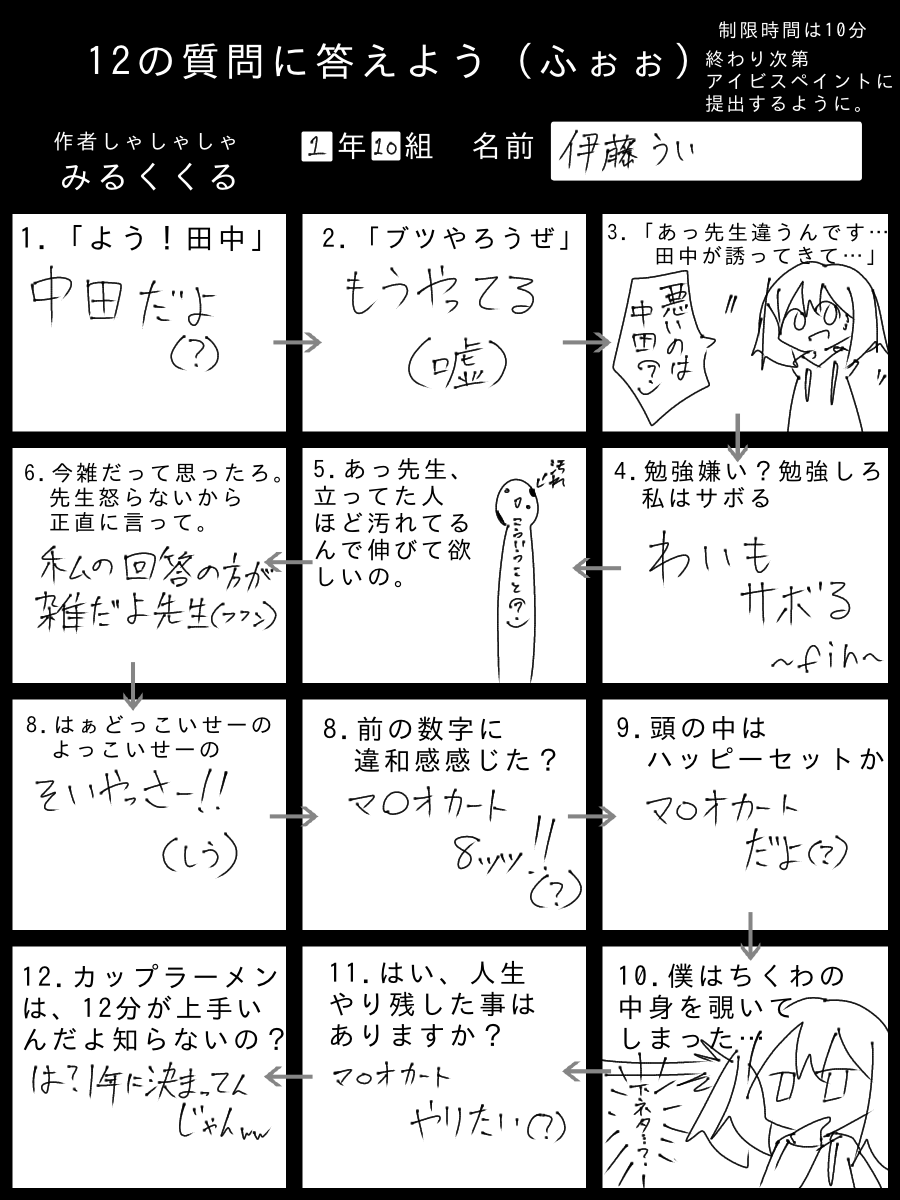 12の質問に答えよう（ふぉぉ）
制限時間は10分
終わり次第
アイビスペイントに
提出するように。
作者しゃしゃしゃ
みるくくる
1年10組 名前 伊藤うい
1.「よう！田中」
中田だよ
(?)
2.「ブツやろうぜ」
もうやってる
(嘘)
3.「あっ先生違うんです…
田中が誘ってきて…」
悪いのは
中田(?)
4.勉強嫌い？勉強しろ
私はサボる
わいも
サボる
~fin~
5.あっ先生、
立ってた人
ほど汚れてる
んで伸びて欲
しいの。
汚れ
こういうことの(?)
6.今雑だって思ったろ。
先生怒らないから
正直に言って。
私の回答の方が
雑だよ先生(フフン)
8.はぁどっこいせーの
よっこいせーの
そいやっさー!!
(しう)
8.前の数字に
違和感感じた？
マ〇オカート
8ッッッ!!
(?)
9.頭の中は
ハッピーセットか
マ〇オカート
だよ(?)
10.僕はちくわの
中身を覗いて
しまった…
ホネタ…?!
11.はい、人生
やり残した事は
ありますか？
マ〇オカート
やりたい(?)
12.カップラーメン
は、12分が上手い
んだよ知らないの？
は?1年に決まってん
じゃんww